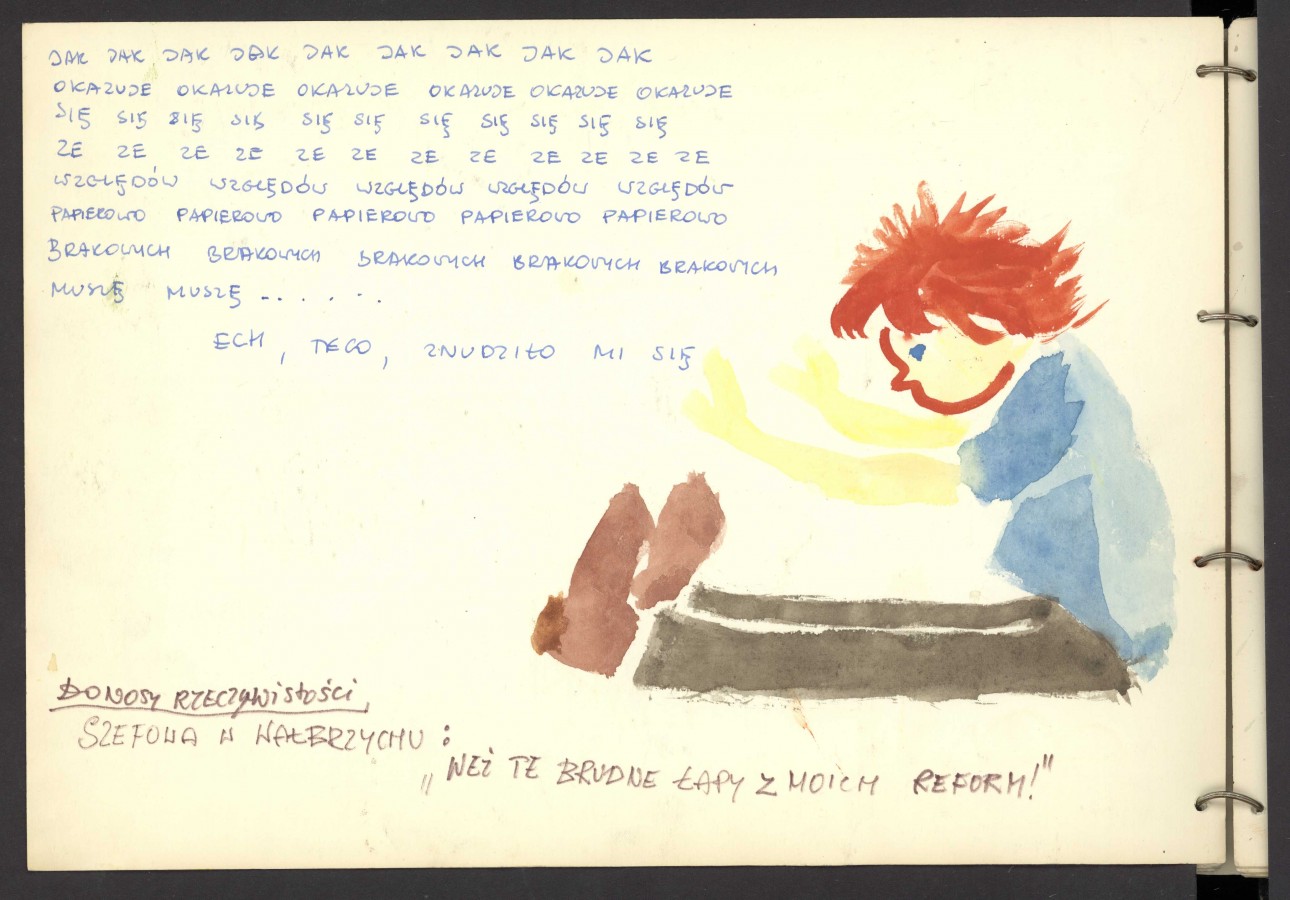 JAK JAK JAK JAK JAK JAK JAK JAK JAK
OKAZUJE OKAZUJE OKAZUJE OKAZUJE OKAZUJE OKAZUJE
SIĘ SIĘ SIĘ SIĘ SIĘ SIĘ SIĘ SIĘ SIĘ SIĘ SIĘ
ZE ZE ZE ZE ZE ZE ZE ZE ZE ZE ZE ZE
WZGLĘDÓW WZGLĘDÓW WZGLĘDÓW WZGLĘDÓW WZGLĘDÓW
PAPIEROWO PAPIEROWO PAPIEROWO PAPIEROWO PAPIEROWO
BRAKOWYCH BRAKOWYCH BRAKOWYCH BRAKOWYCH BRAKOWYCH
MUSZĘ MUSZĘ - . . . . .
ECH, TEGO, ZNUDZIŁO MI SIĘ
DONOSY RZECZYWISTOŚCI,
SZEFOWA W WAŁBRZYCHU:
„WEŹ TE BRUDNE ŁAPY Z MOICH REFORM!"